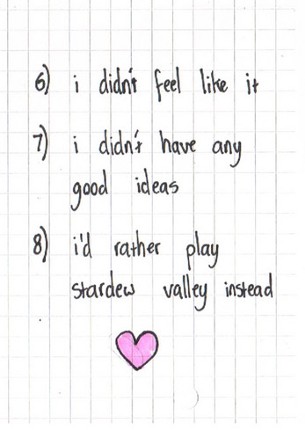 6) i didn't feel like it
7) i didn't have any
good ideas
8) i'd rather play
stardew valley instead